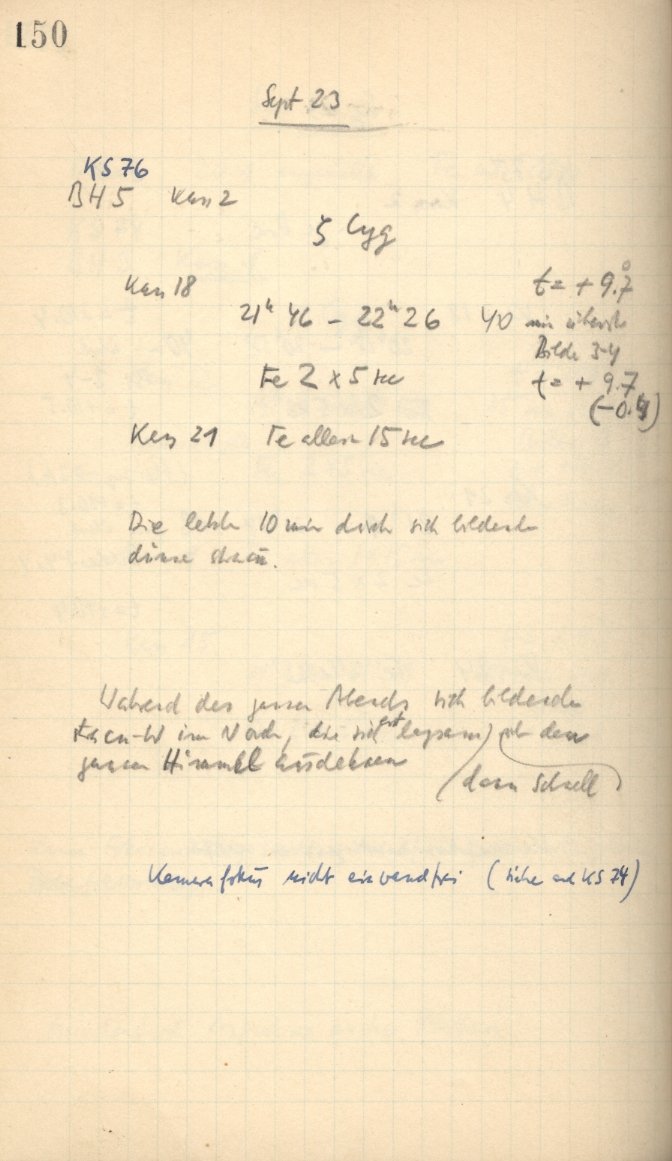 150
Sept 23
KS 76
BH 5 Kas 2
ζ Cyg
Kas 18
t = + 9.°7
21ʰ 46 – 22ʰ 26 40 min
Bilde 3-4
Fe 2 x 5 sec
t = + 9.7
(-0.4)
Kas 21 Fe allein 15 sec
Die letzten 10 min durch sich bildende
dünne
Während des ganzen Abends sich bildende
im Nord, die sich erst langsam,
ganzen Himmel ausdehnen
(dann schnell)
Kamerafokus nicht einwandfrei (siehe KS 74)